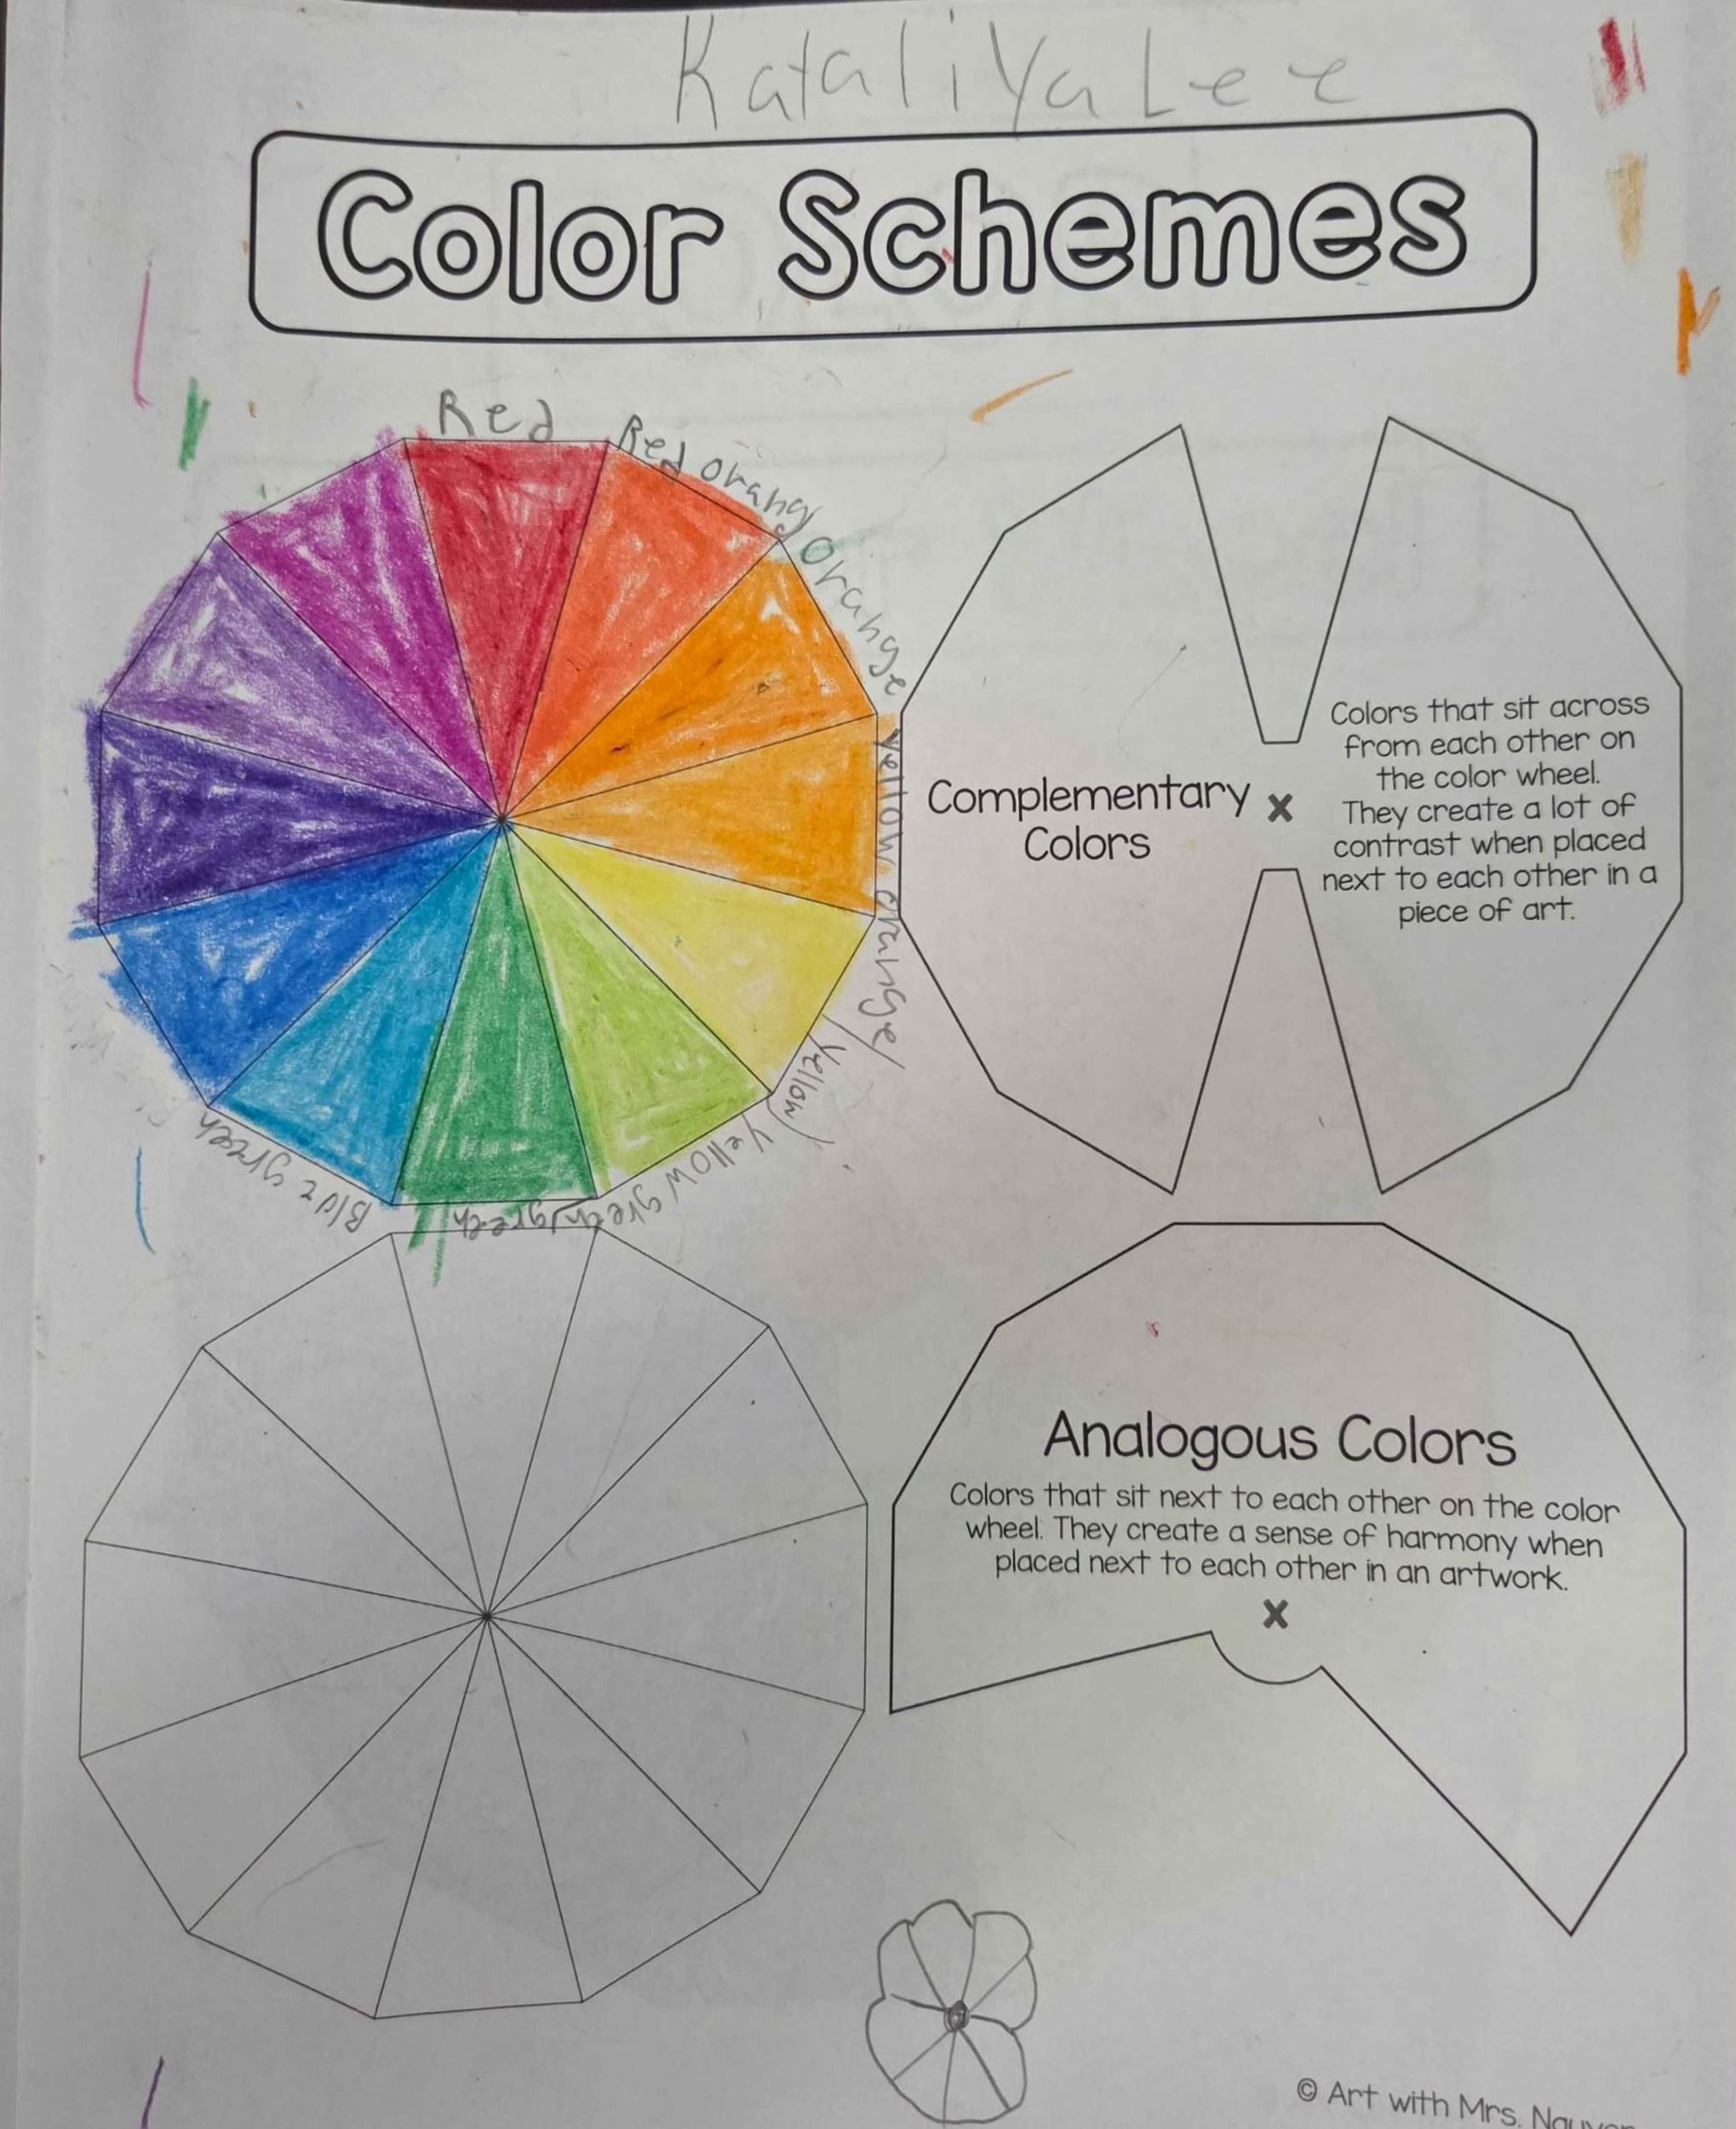 Kataliya Lee
Color Schemes
Red
Red orang
Orange
Yellow orange
Yellow
Yellow green
green
Blue green
Complementary
Colors
Colors that sit across
from each other on
the color wheel.
They create a lot of
contrast when placed
next to each other in a
piece of art.
Analogous Colors
Colors that sit next to each other on the color
wheel. They create a sense of harmony when
placed next to each other in an artwork.
© Art with Mrs.